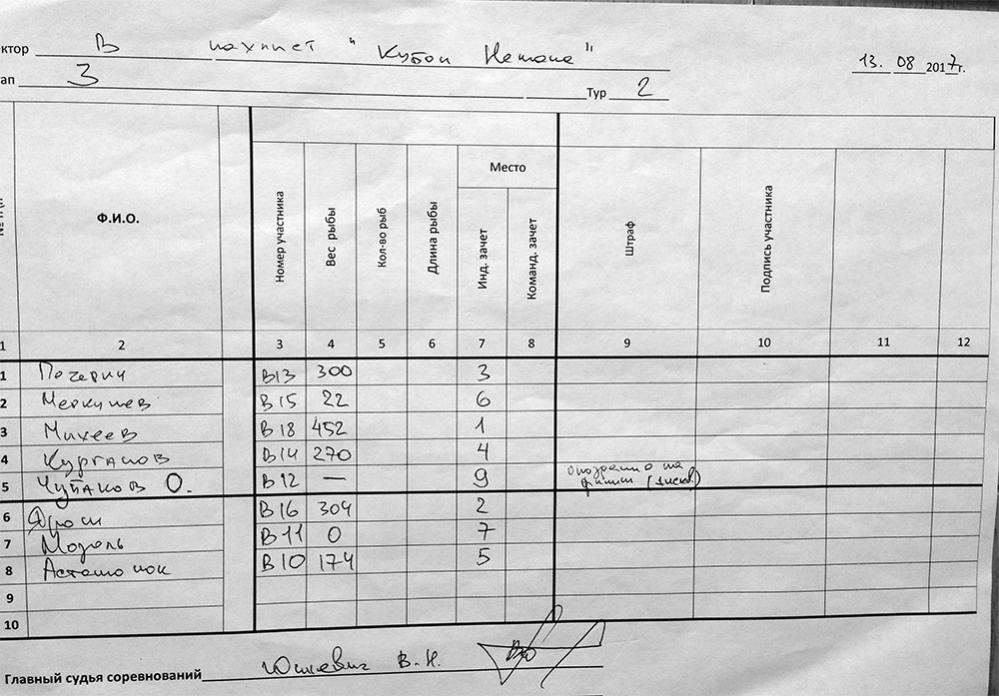 ктор В пахпист "Кубок Немана" 13. 08 2017г.
ап 3 Тур 2
Место
№ п/п Ф.И.О. Номер участника Вес рыбы Кол-во рыб Длина рыбы Инд. зачет Команд. зачет Штраф Подпись участника
1 2 3 4 5 6 7 8 9 10 11 12
1 В13 300 3
2 Меркушев В15 22 6
3 Михеев В18 452 1
4 Курганов В14 270 4
опоздание на
5 Чупаков О. В12 — 9 финиш (дискв.)
6 Яроси В16 304 2
7 Модоль В11 0 7
8 Асташонок В10 174 5
9
10
Главный судья соревнований Юшкевич В.Н.